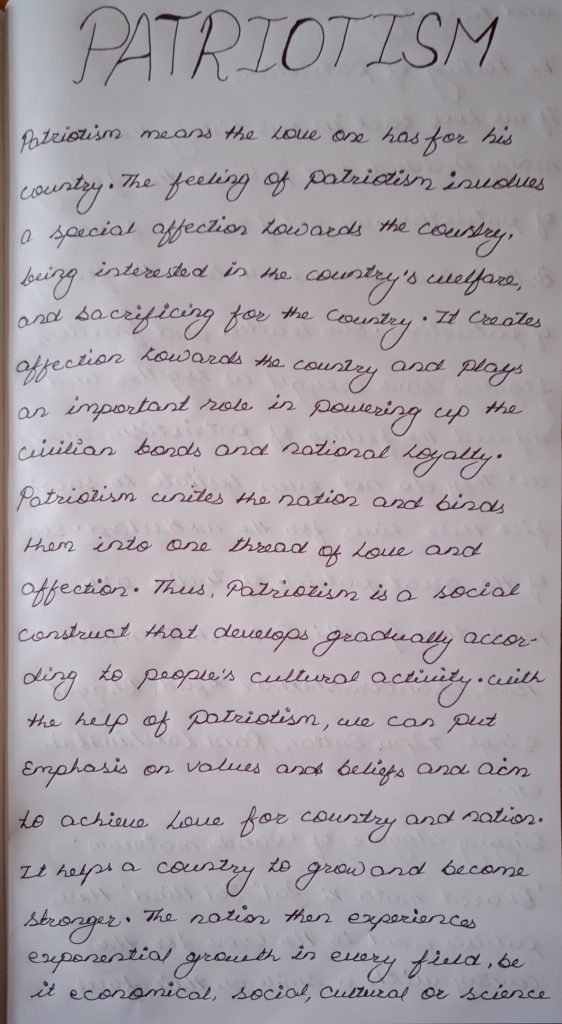 PATRIOTISM
Patriotism means the love one has for his
country. The feeling of patriotism involves
a special affection towards the country,
being interested in the country's welfare,
and sacrificing for the country. It creates
affection towards the country and plays
an important role in powering up the
civilian bonds and national loyalty.
Patriotism unites the nation and binds
them into one thread of love and
affection. Thus, Patriotism is a social
construct that develops gradually accor-
ding to people's cultural activity. with
the help of patriotism, we can put
emphasis on values and beliefs and aim
to achieve love for country and nation.
It helps a country to grow and become
stronger. The nation then experiences
exponential growth in every field, be
it economical, social, cultural or science